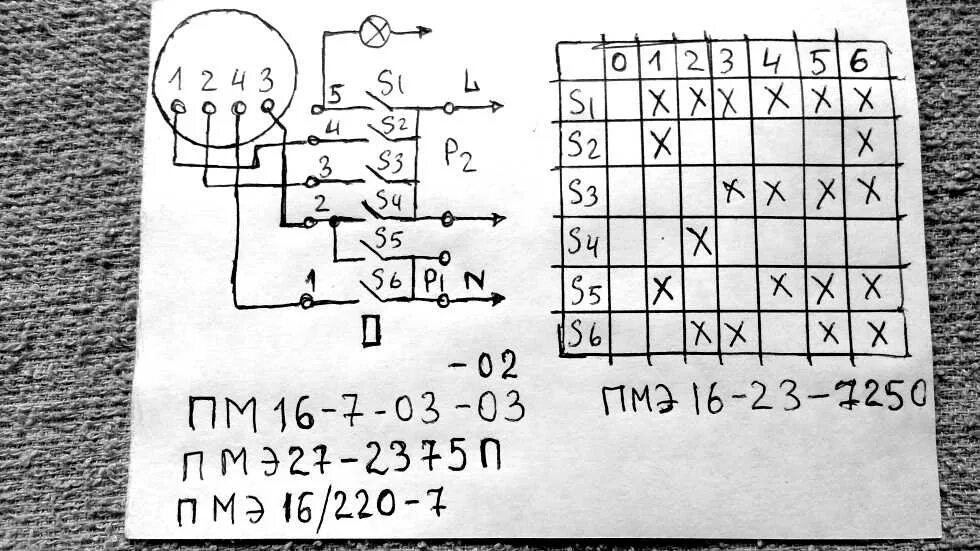 1 2 4 3
5 S1 L
4 S2
P2
3 S3
2 S4
S5
1 S6 P1 N
П
-02
ПМ16-7-03-03
ПМЭ27-2375П
ПМЭ16/220-7
0 1 2 3 4 5 6
S1 X X X X X X
S2 X X
S3 X X X X
S4 X
S5 X X X X
S6 X X X X
ПМЭ16-23-7250